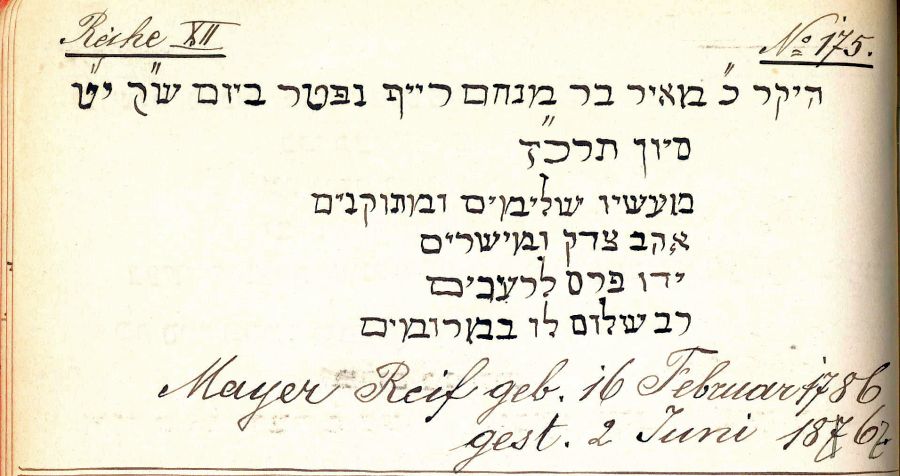 Reihe XII № 175.
היקר כ״ מאיר בר מנחם רייף נפטר ביום ש״ק י״ט
סיון תרכ״ז
מעשיו שלימים ומתוקנים
אהב צדק ומישרים
ידו פרס לרעבים
רב שלום לו במרומים
Mayer Reif geb. 16 Februar 1786
gest. 2 Juni 1867.